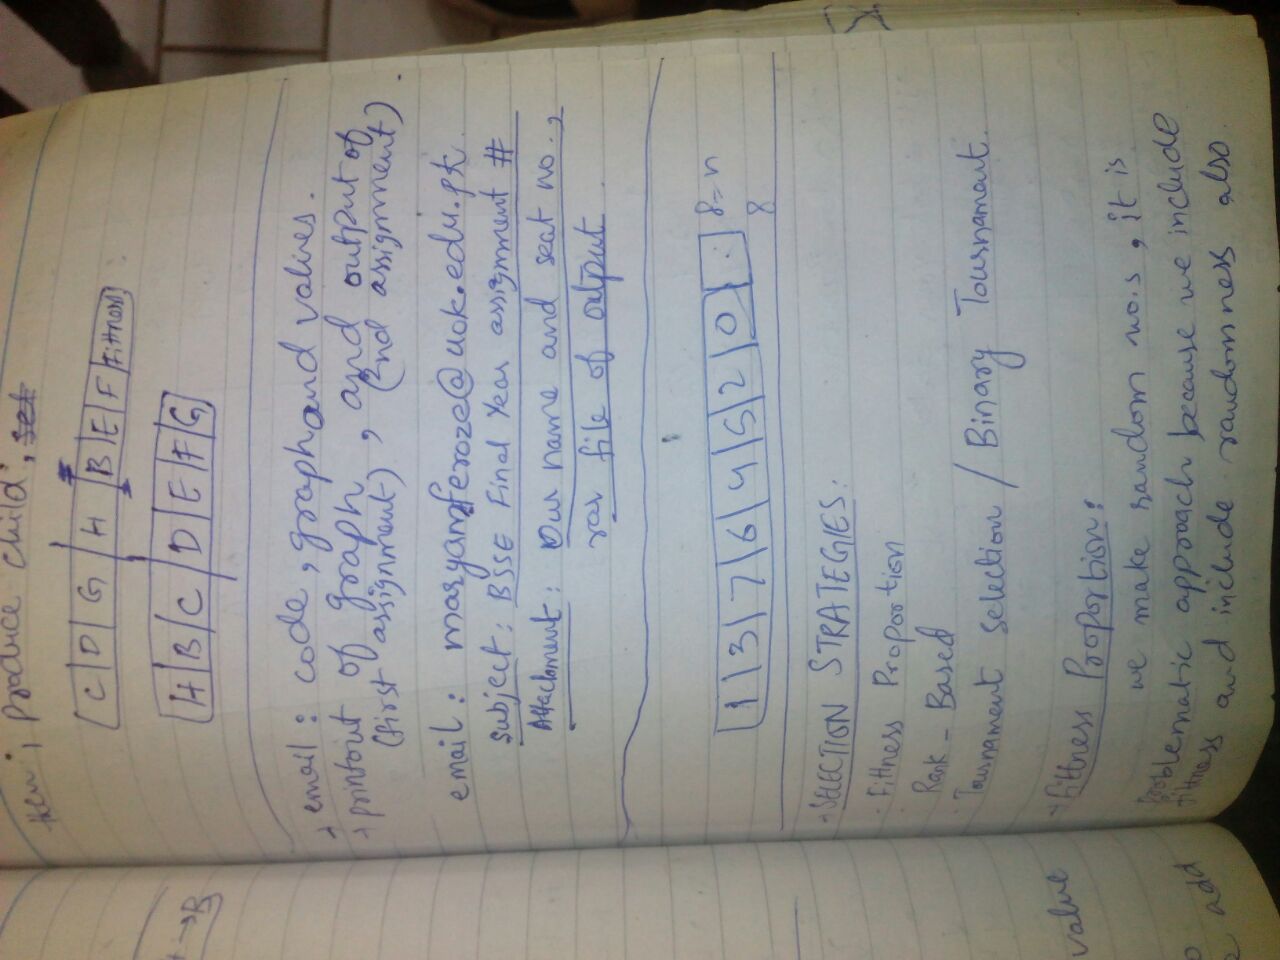 then; produce child;
C | D | G | H | B | E | F | Fitness
A | B | C | D | E | F | G
→ email: code, graph and values.
→ printout of graph, and output of
(first assignment), (2nd assignment).
email: maryamferoze@uok.edu.pk
Subject: BSSE Final Year assignment #
Attachment: Our name and seat no.,
rar file of output
1 | 3 | 7 | 6 | 4 | 5 | 2 | 0 | . 8=n
8
→ SELECTION STRATEGIES:
· Fitness Proportion
· Rank - Based
· Tournament Selection / Binary Tournament.
→ Fitness Proportion:
we make random no.s, it is
problematic approach because we include
fitness and include randomness also
→ B
value
add